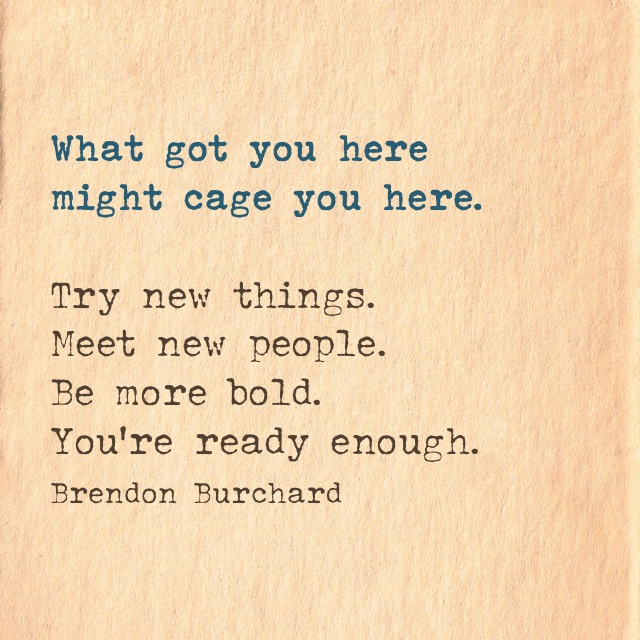 What got you here
might cage you here.
Try new things.
Meet new people.
Be more bold.
You're ready enough.
Brendon Burchard